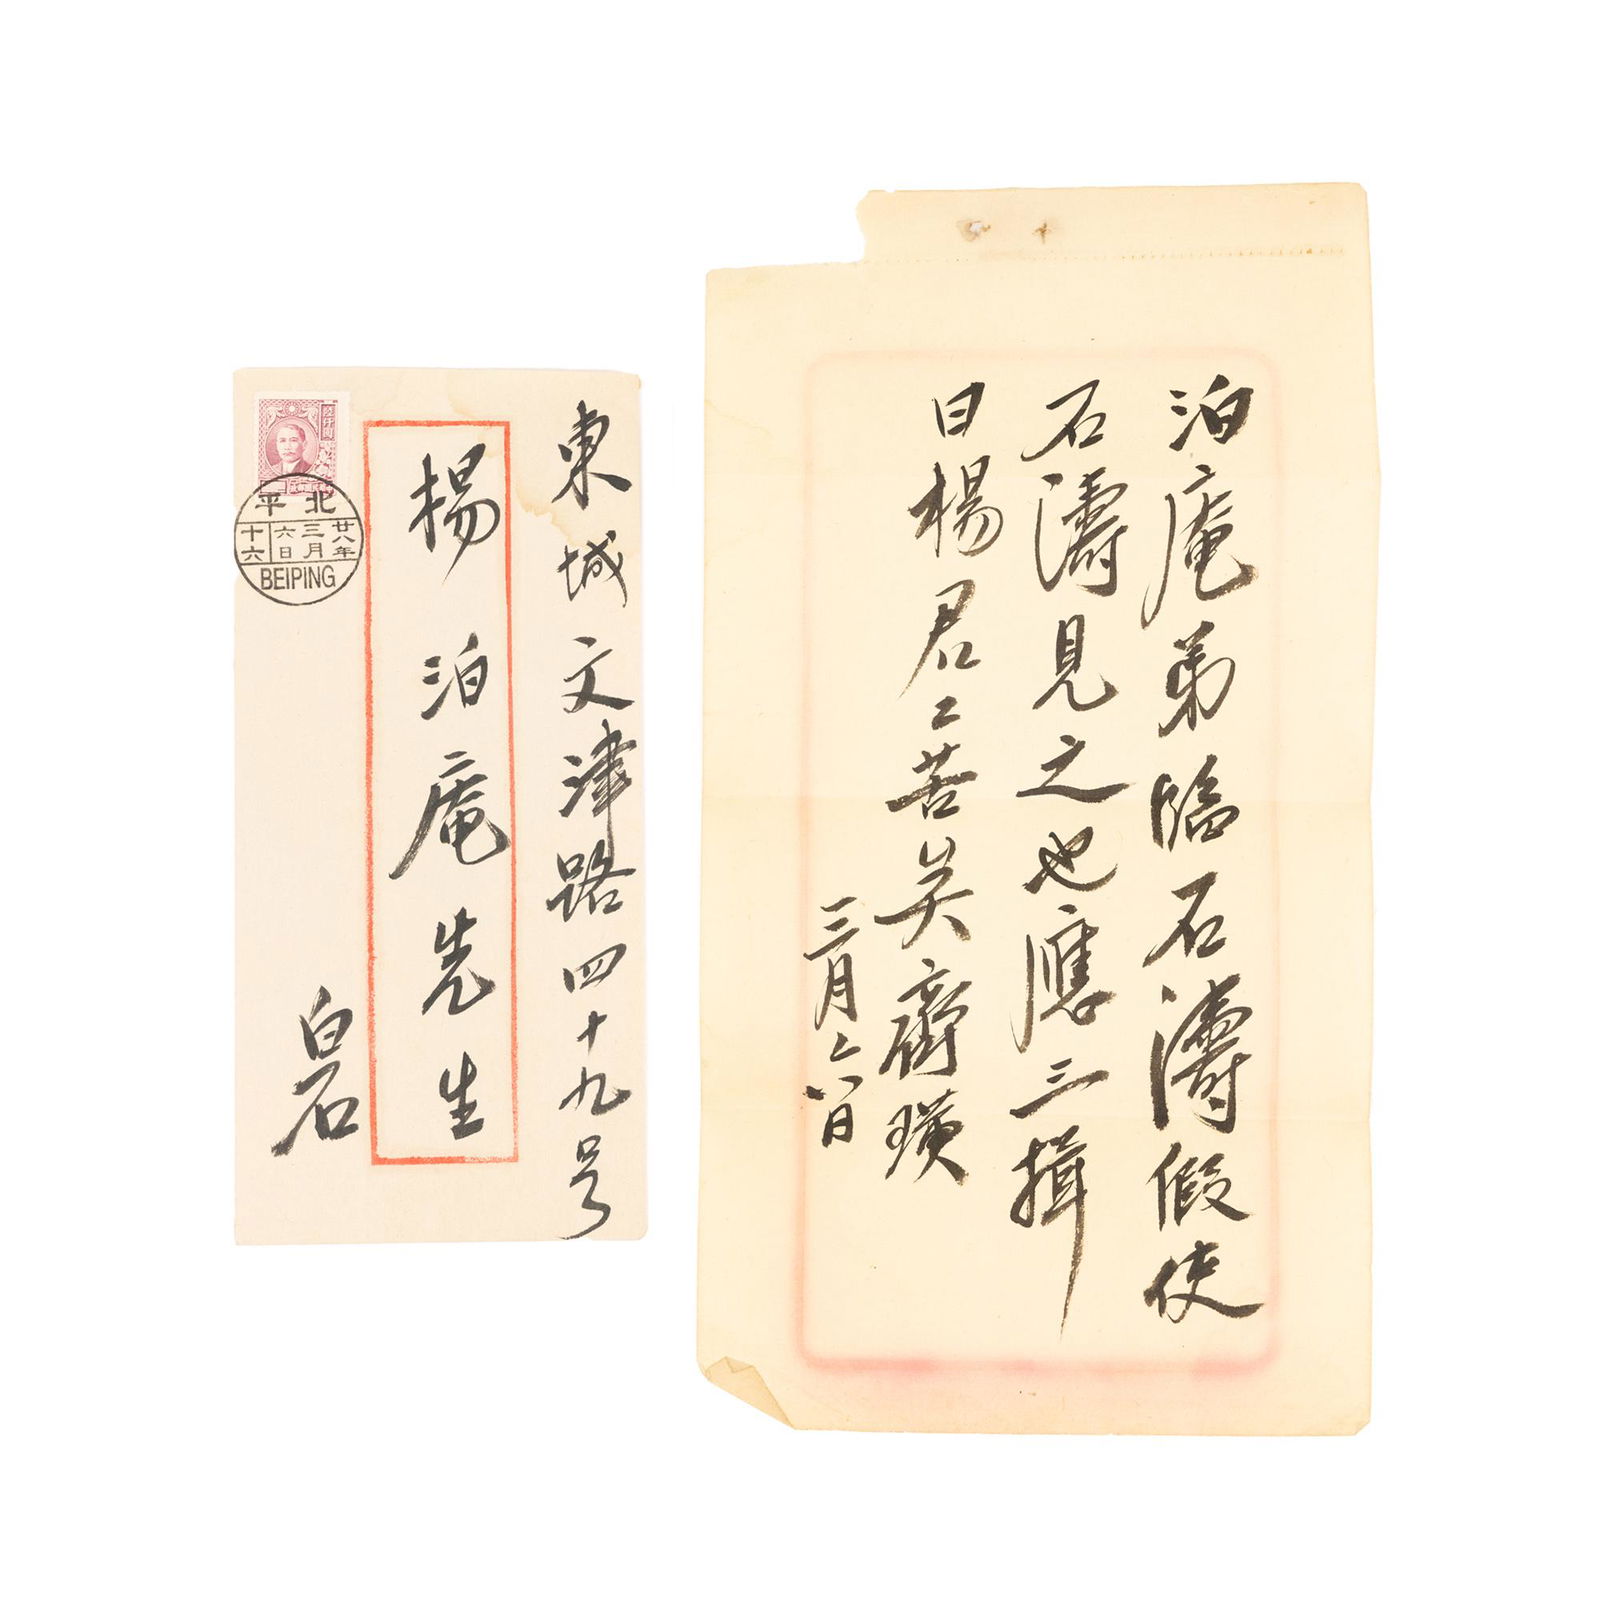 東城文津路四十九号
楊泊庵先生
白石
北平
廿八年
三月
六日
十六
BEIPING
泊庵弟臨石濤假使
石濤見之也應三揖
曰楊君〻苦矣齊璜
三月六日